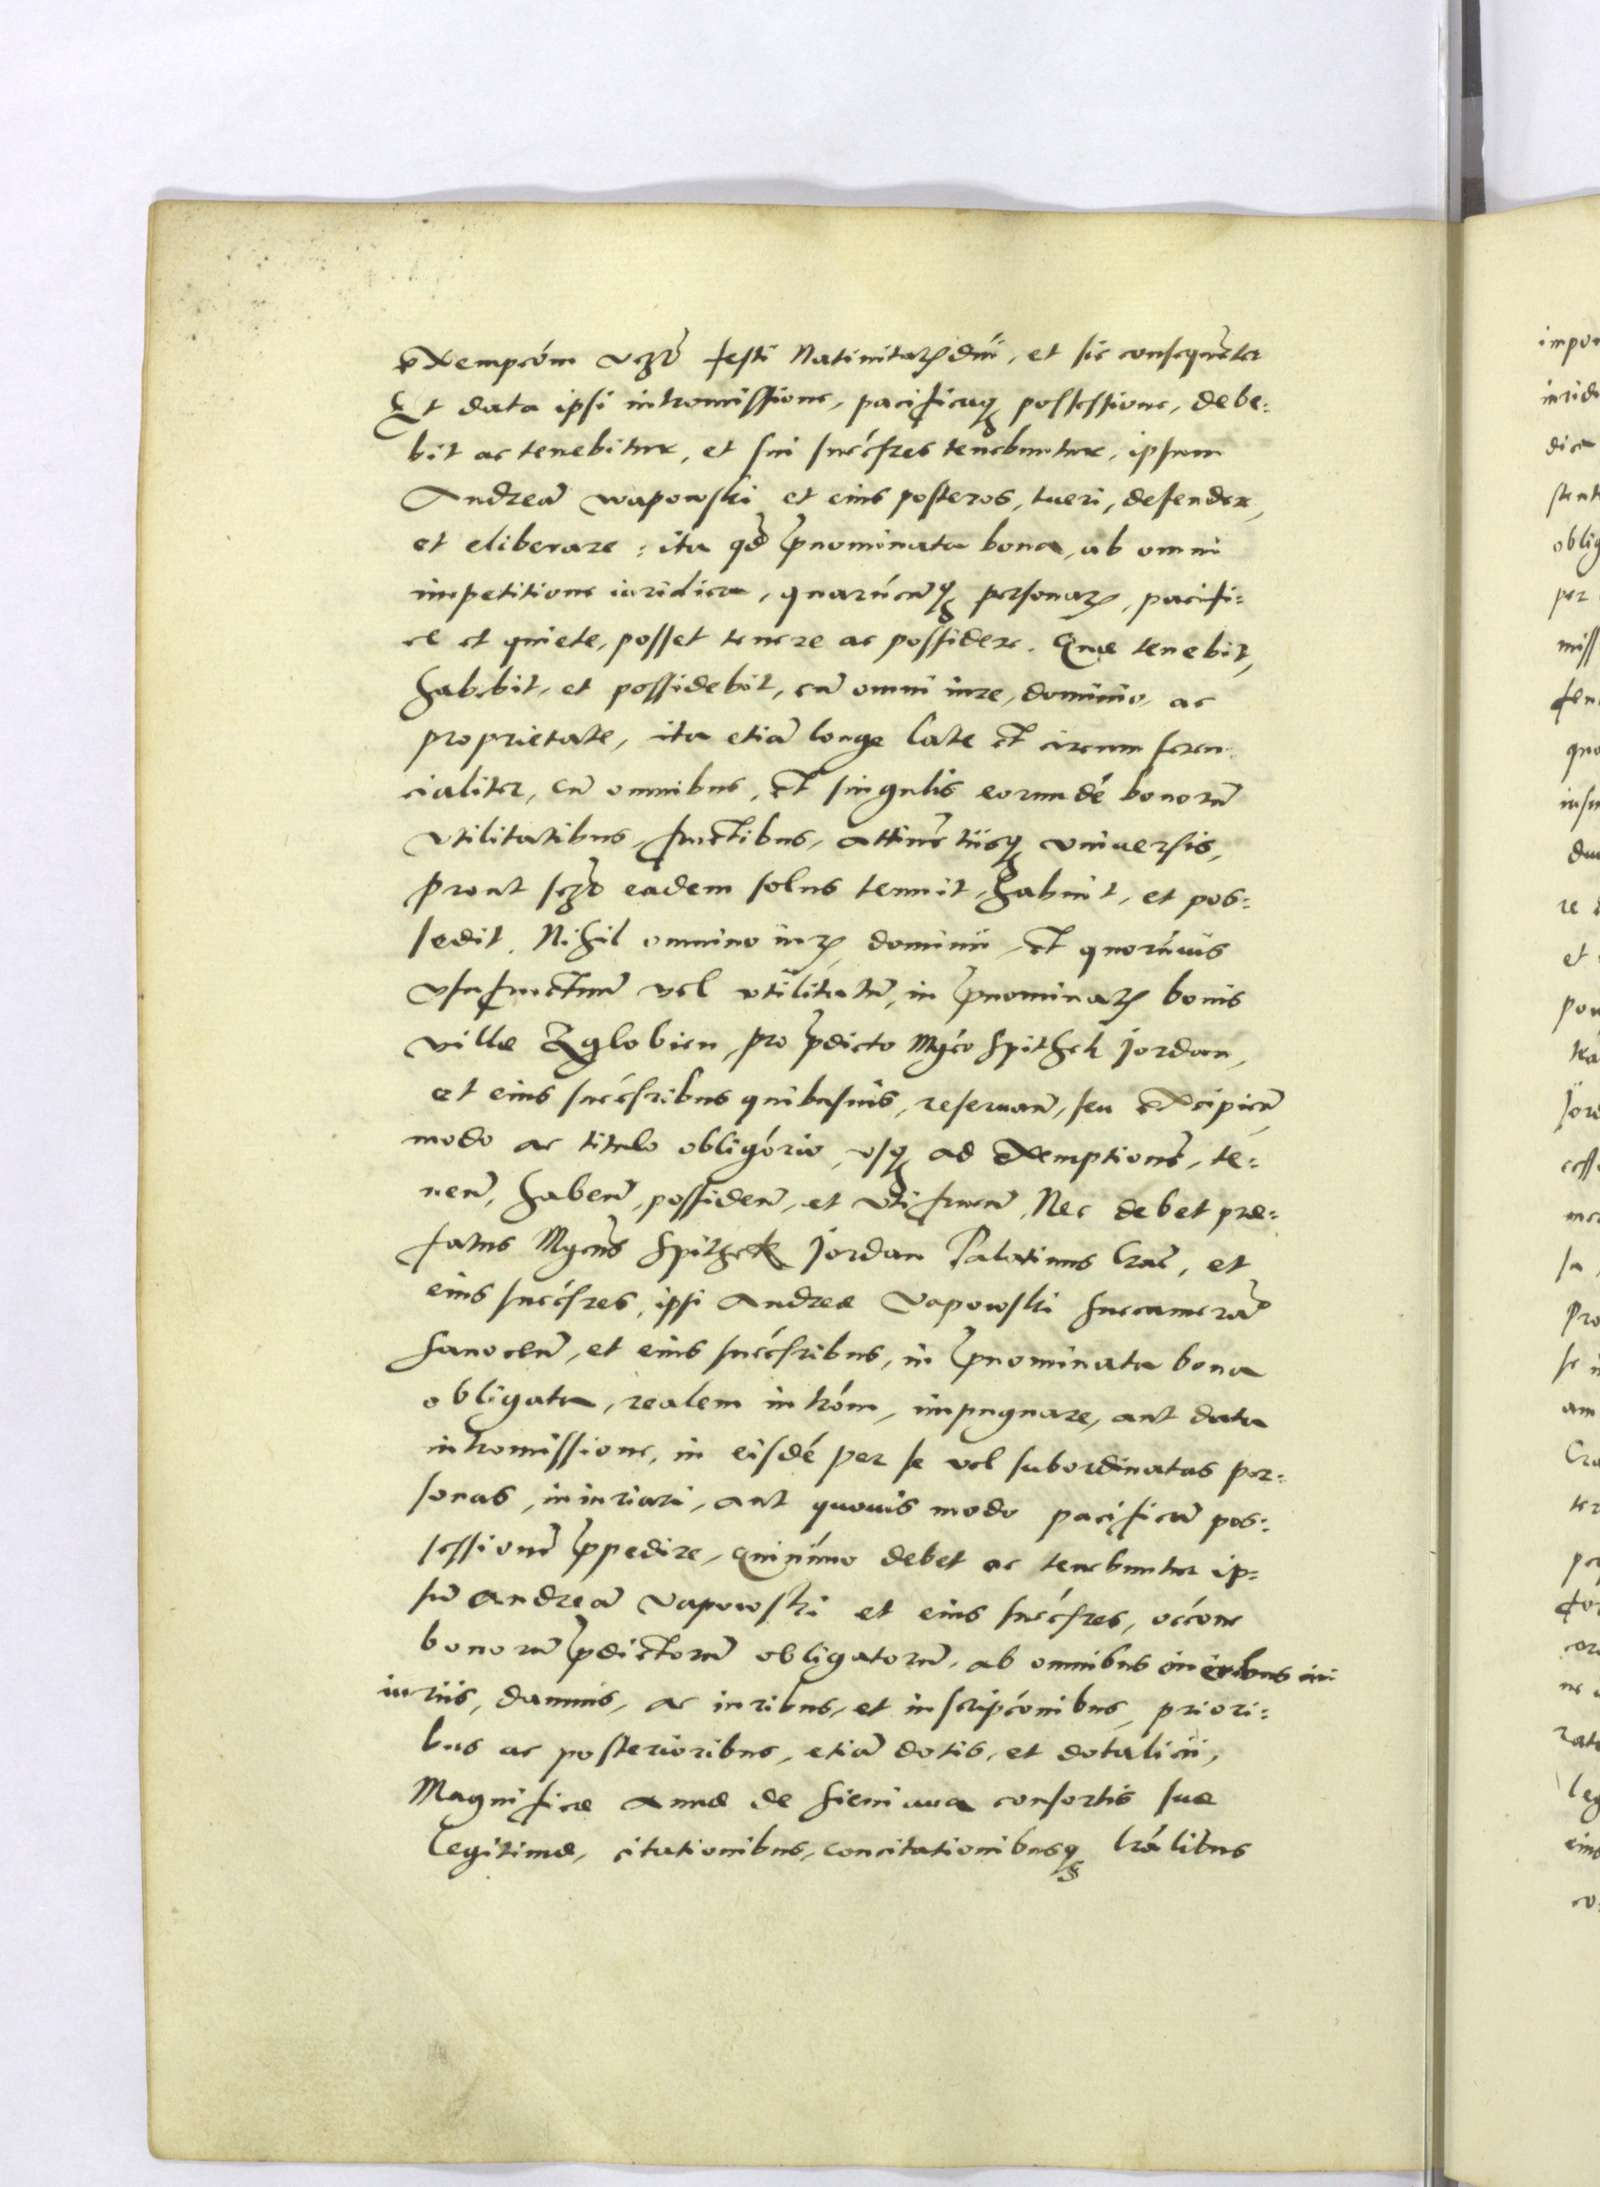 exempcóm usqꝫ festi Natiuitatꝫ dni, et sic consequẽter
Et data ipsi intromissione, pacificaqꝫ possessione, debe:
bit ac tenebitur, et sui succ̃sres tenebuntur, ipsum
Andreã wapowski et eius posteros, tueri, defendere,
et eliberare: ita qđ p̃nominata bona, ab omni
impetitione iuridica, quarũcũqꝫ personaꝝ, pacifi:
ce et quiete, posset tenere ac possidere. Quæ tenebit,
habebit, et possidebit, cũ omni iure, dominio, ac
proprietate, ita etiã longe late et circumferen:
cialiter, cũ omnibus, et singulis eorundẽ bonorũ
vtilitatibus, fructibus, attinẽtiisqꝫ vniuersis,
prout solꝰ eadem solus tenuit, habuit, et pos:
sedit. Nihil omnino iurꝫ, dominii, et quorũuis
vsufructuũ vel vtilitatũ, in p̃nominatꝫ bonis
villæ Zglobien, pro p̃dicto Mgco Spithek Jordan,
et eius succ̃sribus quibusuis, reseruan̄, seu excipien̄,
modo ac titulo obligório, vsqꝫ ad exemptionẽ, te:
nen̄, haben̄, possiden̄, et vtifruen̄, Nec debet præ:
fatus Mgcus Spithek Jordan Palatinus Crac̄, et
eius succ̃sres, ipsi Andreæ Vapowski Succamerar̄
Sanocen̄, et eius succ̃sribus, in p̃nominata bona
obligata, realem intróm, impugnare, aut data
intromissione, in eisdẽ per se vel subordinatas per:
sonas, iniuriari, aut quouis modo pacificã pos:
sessionẽ p̃pedire, quinimo debet ac tenebuntur ip:
sũ Andreã Vapowski et eius succ̃sres, occóne
bonorũ p̃dictorũ obligatorũ, ab omnibus oneribus ini
iuriis, damnis, ac iuribus, et inscripcónibus, priori:
bus ac posterioribus, etiã dotis, et dotalicii,
Magnificæ Annæ de Sieniaua consortis suæ
Legitimæ, citationibus, concitationibusqꝫ tralibus